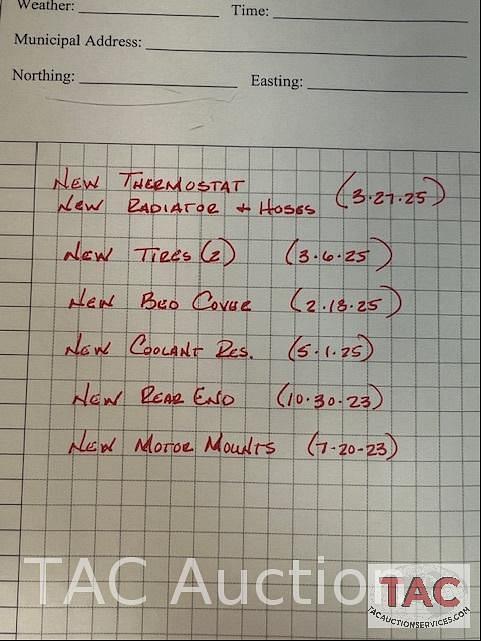 Weather: Time:
Municipal Address:
Northing: Easting:
NEW THERMOSTAT
NEW RADIATOR + HOSES (3.27.25)
NEW TIRES (2) (3.6.25)
NEW BED COVER (2.18.25)
NEW COOLANT RES. (5.1.25)
NEW REAR END (10.30.23)
NEW MOTOR MOUNTS (7-20-23)
TAC Auction
TAC
TACAUCTIONSERVICES.COM